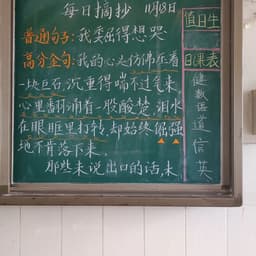 每日摘抄 11月8日
普通句子:我委屈得想哭
高分金句:我的心是仿佛压着
一块巨石,沉重得喘不过气来,
心里翻涌着一股酸楚,泪水
在眼眶里打转,却始终倔强
地不肯落下来.
那些未说出口的话,未
值日生
日课表
健
数
语
道
信
英